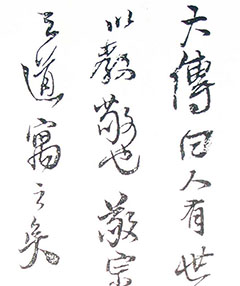 大傳曰人有世
以教敬也敬宗
之道寓之矣